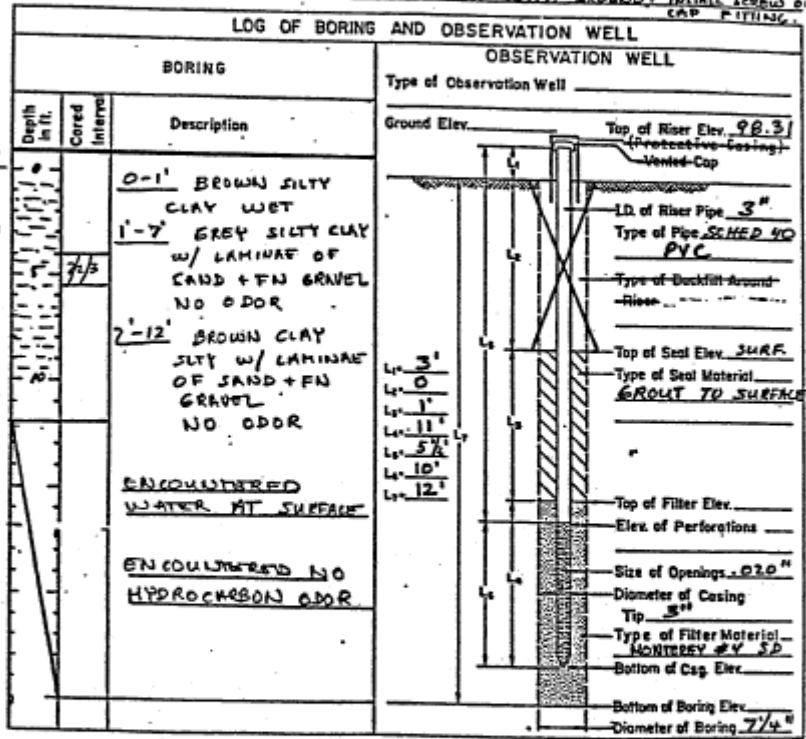 CAP FITTING.
LOG OF BORING AND OBSERVATION WELL
BORING
Depth in ft.
Cored Interval
Description
0
5
10
2/2/3
0-1' BROWN SILTY
CLAY WET
1'-7' GREY SILTY CLAY
W/ LAMINAE OF
SAND + FN GRAVEL
NO ODOR
7'-12' BROWN CLAY
SLTY W/ LAMINAE
OF SAND + FN
GRAVEL
NO ODOR
ENCOUNTERED
WATER AT SURFACE
ENCOUNTERED NO
HYDROCARBON ODOR
OBSERVATION WELL
Type of Observation Well
Ground Elev.
Top of Riser Elev. 98.31
(Protective Casing)
Vented Cap
I.D. of Riser Pipe 3"
Type of Pipe SCHED 40
PVC
Type of Backfill Around
Riser
Top of Seal Elev. SURF.
Type of Seal Material
GROUT TO SURFACE
Top of Filter Elev.
Elev. of Perforations
Size of Openings .020"
Diameter of Casing
Tip 3"
Type of Filter Material
MONTEREY #4 SD
Bottom of Csg. Elev.
Bottom of Boring Elev.
Diameter of Boring 7 1/4"
L1= 3'
L2= 0
L3= 1'
L4= 11'
L5= 5 1/2'
L6= 10'
L7= 12'
L1
L2
L3
L4
L5
L6
L7